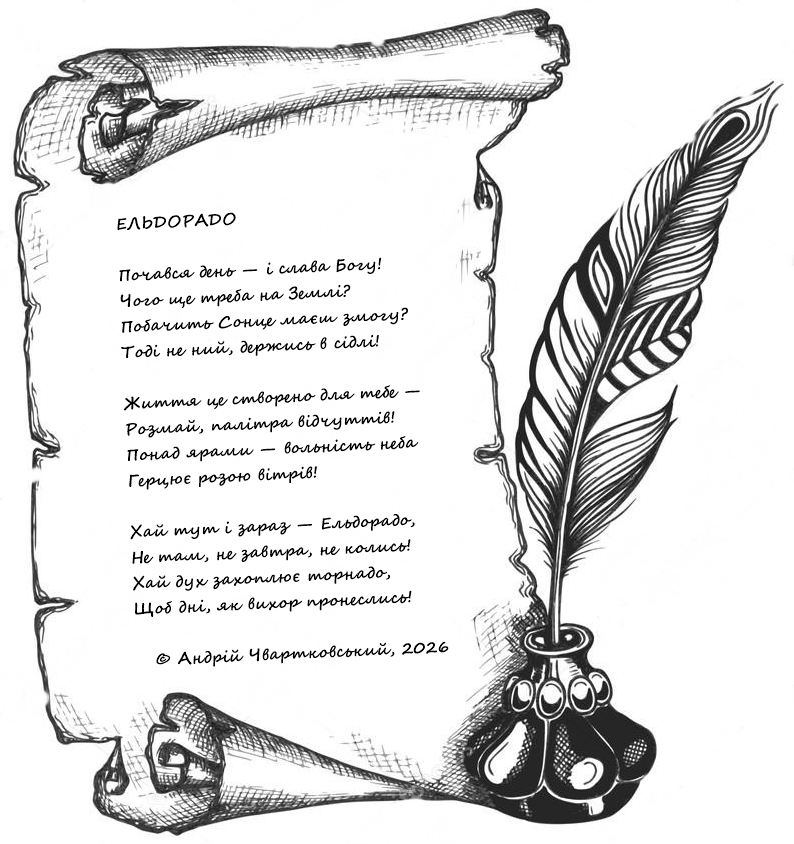 ЕЛЬДОРАДО
Почався день — і слава Богу!
Чого ще треба на Землі?
Побачить Сонце маєш змогу?
Тоді не ний, держись в сідлі!
Життя це створено для тебе —
Розмай, палітра відчуттів!
Понад ярами — вольність неба
Герцює розою вітрів!
Хай тут і зараз — Ельдорадо,
Не там, не завтра, не колись!
Хай дух захоплює торнадо,
Щоб дні, як вихор пронеслись!
© Андрій Чвартковський, 2026